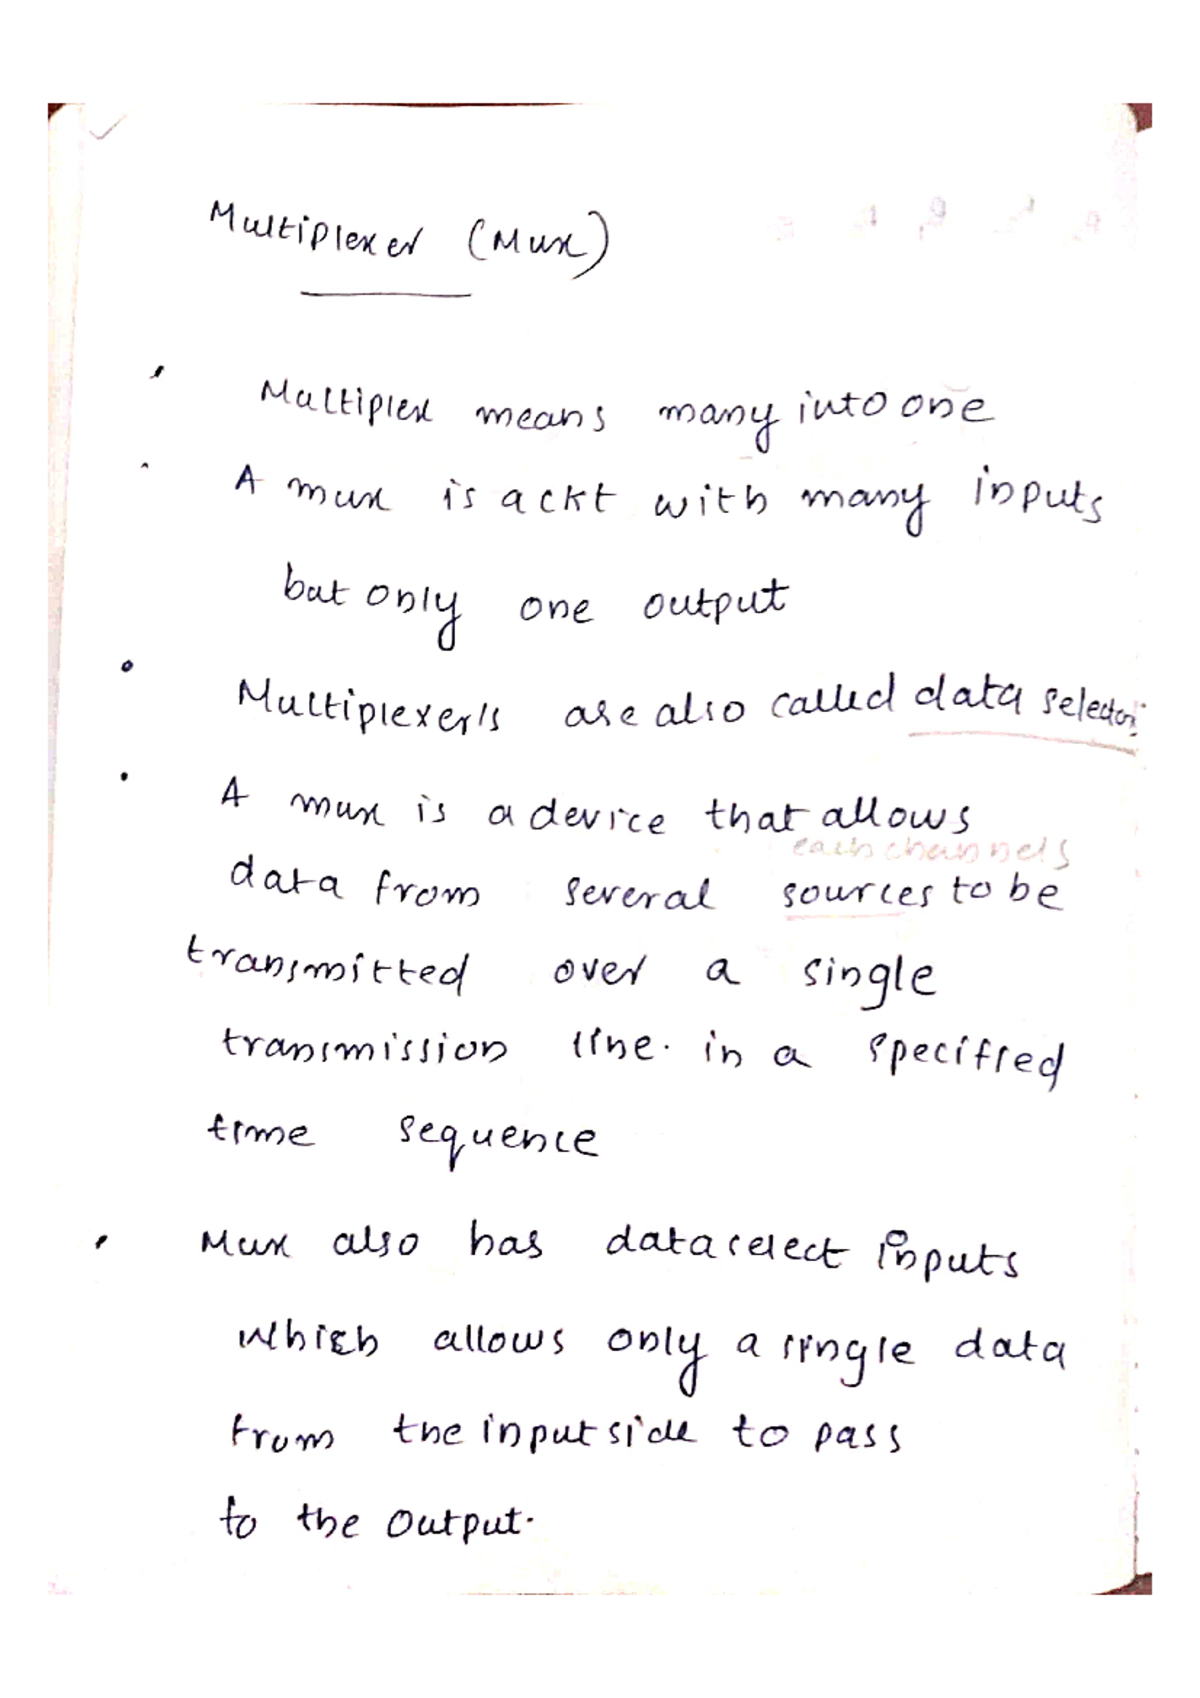 Multiplexer (Mux)
Multiplex means many into one
A mux is a ckt with many inputs
but only one output
Multiplexer's are also called data selector
A mux is a device that allows
each channels
data from several sources to be
transmitted over a single
transmission line. in a specified
time sequence
Mux also has data select inputs
which allows only a single data
from the input side to pass
to the output.